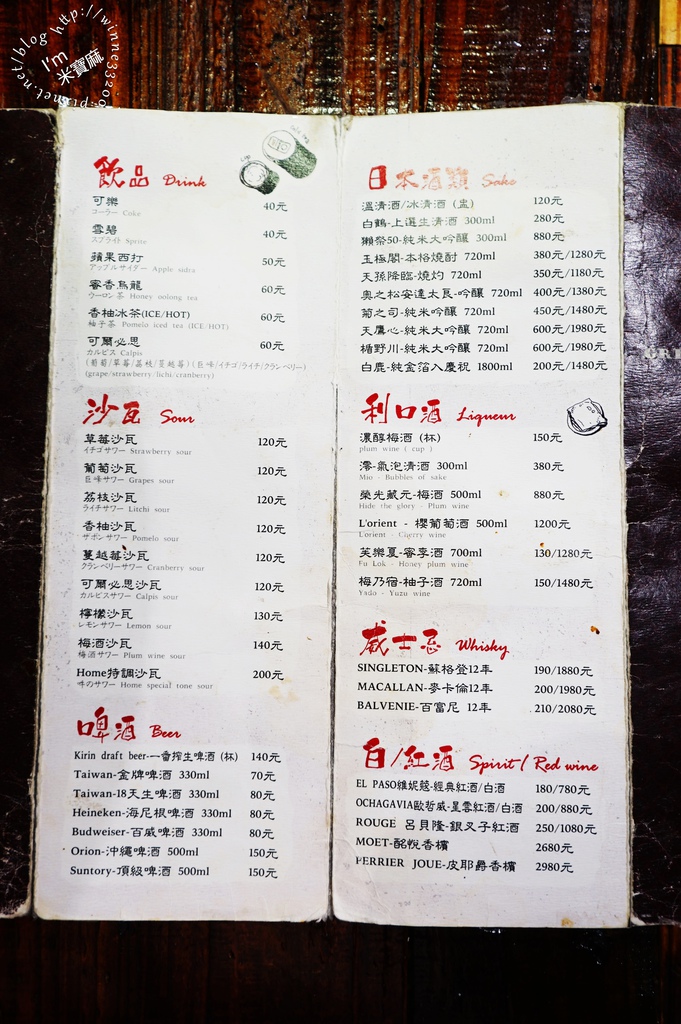 http://winne3320.pixnet.net/blog
I'm
米寶麻
飲品 Drink
可樂 40元
コーラー Coke
雪碧 40元
スプライト Sprite
蘋果西打 50元
アップルサイダー Apple sidra
蜜香烏龍 60元
ウーロン茶 Honey oolong tea
香柚冰茶(ICE/HOT) 60元
柚子茶 Pomelo iced tea (ICE/HOT)
可爾必思 60元
カルピス Calpis
(葡萄/草莓/荔枝/蔓越莓)(巨峰/イチゴ/ライチ/クランベリー)
(grape/strawberry/lichi/cranberry)
沙瓦 Sour
草莓沙瓦 120元
イチゴサワー Strawberry sour
葡萄沙瓦 120元
巨峰サワー Grapes sour
荔枝沙瓦 120元
ライチサワー Litchi sour
香柚沙瓦 120元
サボンサワー Pomelo sour
蔓越莓沙瓦 120元
クランベリーサワー Cranberry sour
可爾必思沙瓦 120元
カルピスサワー Calpis sour
檸檬沙瓦 130元
レモンサワー Lemon sour
梅酒沙瓦 140元
梅酒サワー Plum wine sour
Home特調沙瓦 200元
味のサワー Home special tone sour
啤酒 Beer
Kirin draft beer-一番搾生啤酒 (杯) 140元
Taiwan-金牌啤酒 330ml 70元
Taiwan-18天生啤酒 330ml 80元
Heineken-海尼根啤酒 330ml 80元
Budweiser-百威啤酒 330ml 80元
Orion-沖繩啤酒 500ml 150元
Suntory-頂級啤酒 500ml 150元
日本酒類 Sake
溫清酒/冰清酒 (盅) 120元
白鶴-上選生清酒 300ml 280元
獺祭50-純米大吟釀 300ml 880元
玉極閣-本格燒酎 720ml 380元/1280元
天孫降臨-燒灼 720ml 350元/1180元
奧之松安達太良-吟釀 720ml 400元/1380元
菊之司-純米吟釀 720ml 450元/1480元
天鷹心-純米大吟釀 720ml 600元/1980元
楯野川-純米大吟釀 720ml 600元/1980元
白鹿-純金箔入慶祝 1800ml 200元/1480元
利口酒 Liqueur
濃醇梅酒 (杯) 150元
plum wine ( cup )
澪-氣泡清酒 300ml 380元
Mio - Bubbles of sake
榮光藏元-梅酒 500ml 880元
Hide the glory - Plum wine
L'orient - 櫻葡萄酒 500ml 1200元
L'orient - Cherry wine
芙樂夏-蜜李酒 700ml 130/1280元
Fu Lok - Honey plum wine
梅乃宿-柚子酒 720ml 150/1480元
Yado - Yuzu wine
威士忌 Whisky
SINGLETON-蘇格登12年 190/1880元
MACALLAN-麥卡倫12年 200/1980元
BALVENIE-百富尼 12年 210/2080元
白/紅酒 Spirit / Red wine
EL PASO維妮兢-經典紅酒/白酒 180/780元
OCHAGAVIA歐哲威-星雲紅酒/白酒 200/880元
ROUGE 呂貝隆-銀叉子紅酒 250/1080元
MOET-酩悅香檳 2680元
PERRIER JOUE-皮耶爵香檳 2980元